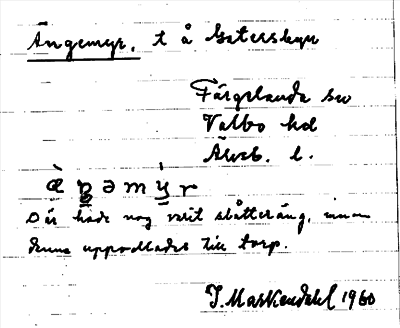 Ängemyr, t å Gaterskyr
Färgelanda sn
Valbo hd
Älvsb. l.
æ̀ ŋ ə m ý r
Där hade nog varit slåtteräng, innan
denna uppodlades till torp.
J. Markendahl 1960